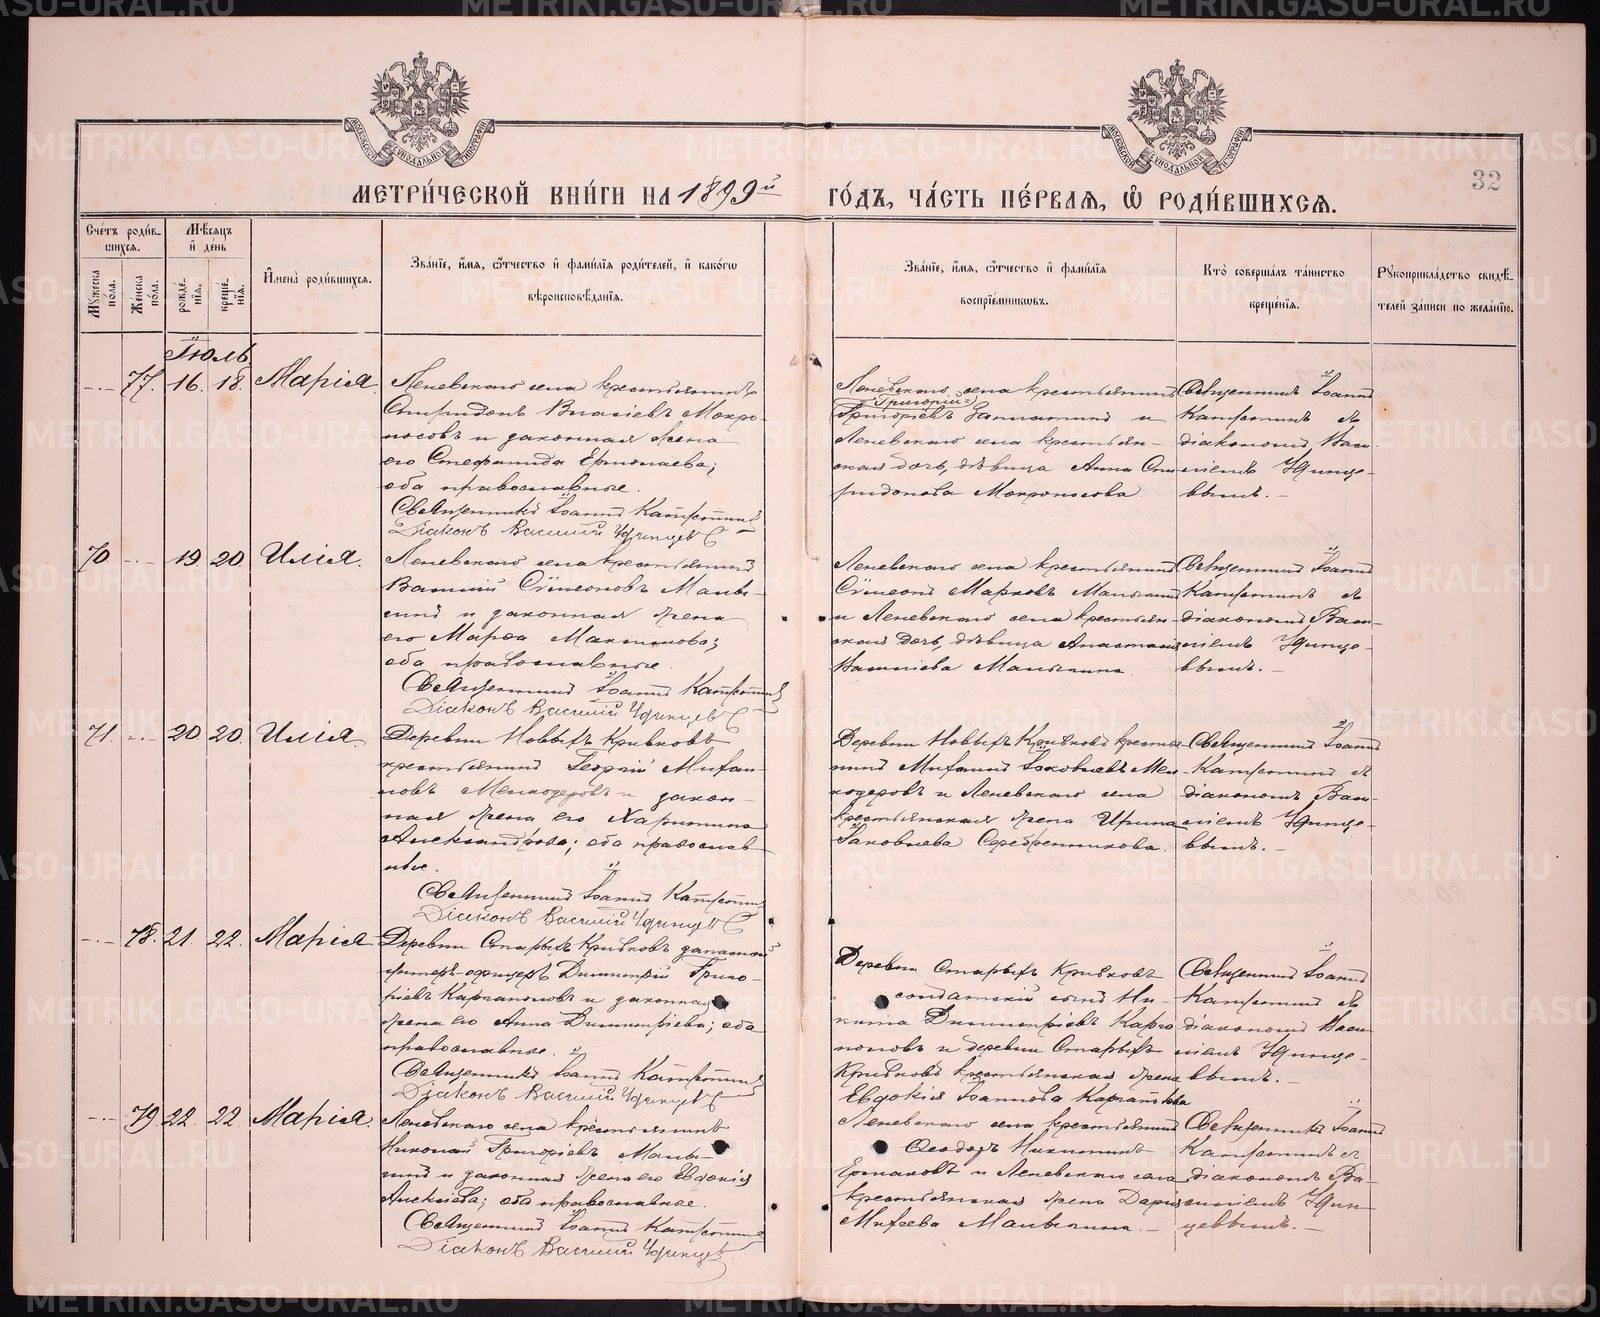 МОСКОВСКОЙ СѴНОДАЛЬНОЙ ТИПОГРАФІИ
МОСКОВСКОЙ СѴНОДАЛЬНОЙ ТИПОГРАФІИ
МЕТРИ́ЧЕСКОЙ КНИ́ГИ НА 1899й ГО́ДЪ, ЧА́СТЬ ПЕ́РВАЯ, Ѡ РОДИ́ВШИХСЯ.
32
Сче́тъ роди́в-
шихся.
Мѣ́сяцъ
и де́нь
Мꙋжеска по́ла.
Же́нска по́ла.
рожде́-
нїя.
креще́-
нїя.
Имена̀ роди́вшихся.
Зва́нїе, и́мя, ѻ҆́тчество и фами́лїя роди́телей, и како́гѡ
вѣроисповѣ́данїя.
Зва́нїе, и́мя, ѻ҆́тчество и фами́лїя
воспрїе́мникѡвъ.
Кто̀ соверша́лъ та́инство
креще́нїя.
Рꙋкоприкла́дство свидѣ́-
телей за́писи по жела́нїю.
Іюль
-.- 77. 16. 18. Марія
Леневскаго села крестьянинъ
Спиридонъ Власіевъ Мокро-
носовъ и законная жена
его Стефанида Ермолаева;
оба православные.
Священникъ Іоаннъ
Діаконъ Василій Удинцев
Леневскаго села крестьянинъ
(Григорій)
Григорьевъ и
Леневскаго села крестьян-
ская дочь, дѣвица Анна Спи
ридонова Мокроносова
Священникъ Іоаннъ
съ
діакономъ Васи-
ліемъ Удинце-
вымъ.-
70 -.- 19 20 Илія.
Леневскаго села крестьянинъ
Василій Сѵмеоновъ Малы-
гинъ и законная жена
его Марѳа Максимова;
оба православные.
Священникъ Іоаннъ
Діаконъ Василій Удинцев
Леневскаго села крестьянинъ
Сѵмеонъ Марковъ Малыгинъ
и Леневскаго села крестьян-
ская дочь, дѣвица Анастасія
Василіева Малыгина.
Священникъ Іоаннъ
съ
діакономъ Васи-
ліемъ Удинце-
вымъ.-
71. -.- 20 20. Илія.
Деревни Новыхъ Кривковъ
крестьянинъ Георгій Михаи-
ловъ Мелкодеровъ и закон-
ная жена его Харитина
Александрова; оба православ-
ные.
Священникъ Іоаннъ
Діаконъ Василій Удинцев
Деревни Новыхъ Кривковъ крестья-
нинъ Михаилъ Іаковлевъ Мел-
кодеровъ и Леневскаго села
крестьянская жена Ирина
Іаковлева Серебренникова.
Священникъ Іоаннъ
съ
діакономъ Васи-
ліемъ Удинце-
вымъ.-
-.- 78. 21. 22. Марія
Деревни Старыхъ Кривковъ запасной
унтеръ-офицеръ Димитрій Григо-
ріевъ Каргаполовъ и законная
жена его Анна Димитріева; оба
православные.
Священникъ Іоаннъ
Діаконъ Василій Удинцев
Деревни Старыхъ Кривковъ
солдатскій сынъ Ни-
кита Димитріевъ Карга
половъ и деревни Старыхъ
Кривковъ крестьянская жена
Евдокія Іоаннова Каргаполова
Священникъ Іоаннъ
съ
діакономъ Васи-
ліемъ Удинце-
вымъ.-
-.- 79. 22. 22. Марія.
Леневскаго села крестьянинъ
Николай Григоріевъ Малы-
гинъ и законная жена его Евдокія
Алексіева; оба православные.
Священникъ Іоаннъ
Діаконъ Василій Удинцев
Леневскаго села крестьянинъ
Ѳеодоръ Никитинъ
Ермаковъ и Леневскаго села
крестьянская жена Дарія
Михеева Малыгина.-
Священникъ Іоаннъ
съ
діакономъ Ва-
силіемъ Удин-
цевымъ.-
METRIKI.GASO-URAL.RU